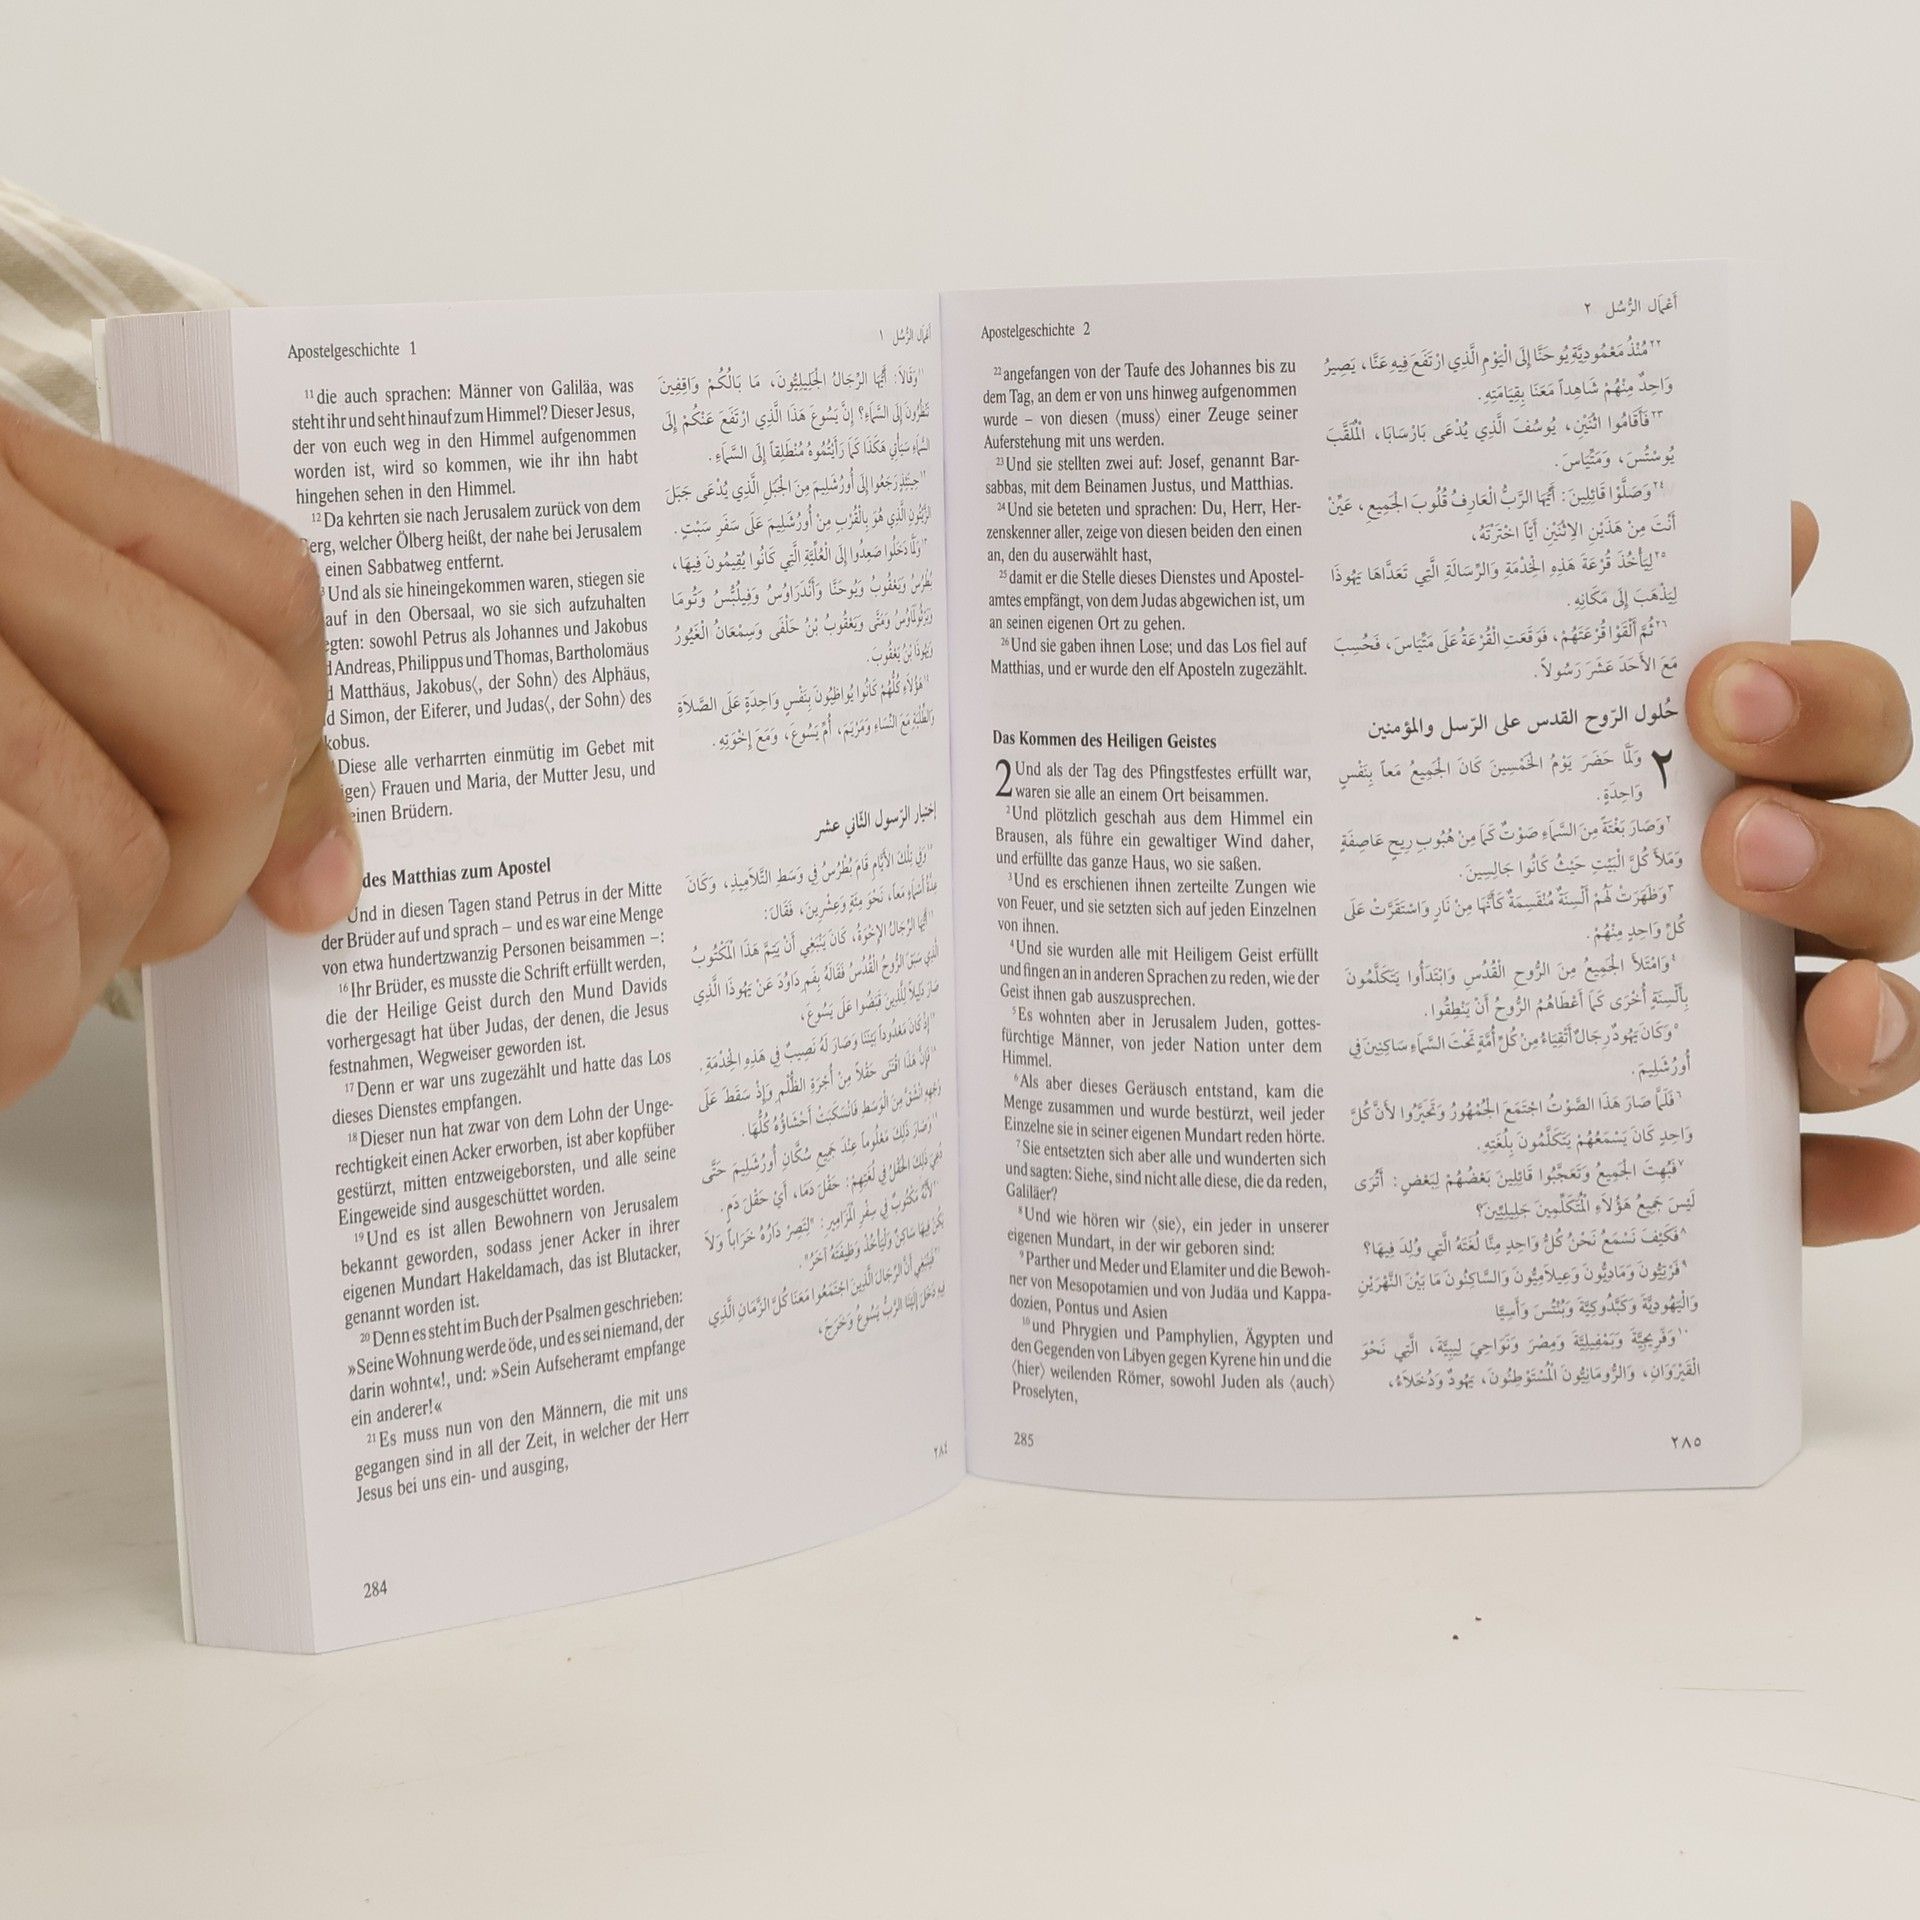 Apostelgeschichte 1
¹¹die auch sprachen: Männer von Galiläa, was
steht ihr und seht hinauf zum Himmel? Dieser Jesus,
der von euch weg in den Himmel aufgenommen
worden ist, wird so kommen, wie ihr ihn habt
hingehen sehen in den Himmel.
¹²Da kehrten sie nach Jerusalem zurück von dem
erg, welcher Ölberg heißt, der nahe bei Jerusalem
einen Sabbatweg entfernt.
Und als sie hineingekommen waren, stiegen sie
auf in den Obersaal, wo sie sich aufzuhalten
egten: sowohl Petrus als Johannes und Jakobus
Andreas, Philippus und Thomas, Bartholomäus
Matthäus, Jakobus⟨, der Sohn⟩ des Alphäus,
d Simon, der Eiferer, und Judas⟨, der Sohn⟩ des
kobus.
Diese alle verharrten einmütig im Gebet mit
igen⟩ Frauen und Maria, der Mutter Jesu, und
einen Brüdern.
des Matthias zum Apostel
Und in diesen Tagen stand Petrus in der Mitte
der Brüder auf und sprach – und es war eine Menge
von etwa hundertzwanzig Personen beisammen –:
¹⁶Ihr Brüder, es musste die Schrift erfüllt werden,
die der Heilige Geist durch den Mund Davids
vorhergesagt hat über Judas, der denen, die Jesus
festnahmen, Wegweiser geworden ist.
¹⁷Denn er war uns zugezählt und hatte das Los
dieses Dienstes empfangen.
¹⁸Dieser nun hat zwar von dem Lohn der Unge-
rechtigkeit einen Acker erworben, ist aber kopfüber
gestürzt, mitten entzweigeborsten, und alle seine
Eingeweide sind ausgeschüttet worden.
¹⁹Und es ist allen Bewohnern von Jerusalem
bekannt geworden, sodass jener Acker in ihrer
eigenen Mundart Hakeldamach, das ist Blutacker,
genannt worden ist.
²⁰Denn es steht im Buch der Psalmen geschrieben:
»Seine Wohnung werde öde, und es sei niemand, der
darin wohnt«!, und: »Sein Aufseheramt empfange
ein anderer!«
²¹Es muss nun von den Männern, die mit uns
gegangen sind in all der Zeit, in welcher der Herr
Jesus bei uns ein- und ausging,
284
أَعْمَال الرُّسُل ١
¹¹وَقَالاَ: أَيُّهَا الرِّجَالُ الْجَلِيلِيُّونَ، مَا بَالُكُمْ وَاقِفِينَ
تَنْظُرُونَ إِلَى السَّمَاءِ؟ إِنَّ يَسُوعَ هَذَا الَّذِي ارْتَفَعَ عَنْكُمْ إِلَى
السَّمَاءِ سَيَأْتِي هَكَذَا كَمَا رَأَيْتُمُوهُ مُنْطَلِقاً إِلَى السَّمَاءِ.
¹²حِينَئِذٍ رَجَعُوا إِلَى أُورُشَلِيمَ مِنَ الْجَبَلِ الَّذِي يُدْعَى جَبَلَ
الزَّيْتُونِ الَّذِي هُوَ بِالْقُرْبِ مِنْ أُورُشَلِيمَ عَلَى سَفَرِ سَبْتٍ.
¹³وَلَمَّا دَخَلُوا صَعِدُوا إِلَى الْعُلِّيَّةِ الَّتِي كَانُوا يُقِيمُونَ فِيهَا،
بُطْرُسُ وَيَعْقُوبُ وَيُوحَنَّا وَأَنْدَرَاوُسُ وَفِيلُبُّسُ وَتُومَا
وَبَرْثُولَمَاوُسُ وَمَتَّى وَيَعْقُوبُ بْنُ حَلْفَى وَسِمْعَانُ الْغَيُورُ
وَيَهُوذَا بْنُ يَعْقُوبَ.
¹⁴هَؤُلاَءِ كُلُّهُمْ كَانُوا يُواظِبُونَ بِنَفْسٍ وَاحِدَةٍ عَلَى الصَّلاَةِ
وَالطِّلْبَةِ مَعَ النِّسَاءِ وَمَرْيَمَ، أُمِّ يَسُوعَ، وَمَعَ إِخْوَتِهِ.
إختيار الرّسول الثّاني عشر
¹⁵وَفِي تِلْكَ الأَيَّامِ قَامَ بُطْرُسُ فِي وَسَطِ التَّلاَمِيذِ، وَكَانَ
عِدَّةُ أَسْمَاءٍ مَعاً، نَحْوَ مِئَةٍ وَعِشْرِينَ، فَقَالَ:
¹⁶أَيُّهَا الرِّجَالُ الإِخْوَةُ، كَانَ يَنْبَغِي أَنْ يَتِمَّ هَذَا الْمَكْتُوبُ
الَّذِي سَبَقَ الرُّوحُ الْقُدُسُ فَقَالَهُ بِفَمِ دَاوُدَ عَنْ يَهُوذَا الَّذِي
صَارَ دَلِيلاً لِلَّذِينَ قَبَضُوا عَلَى يَسُوعَ،
¹⁷إِذْ كَانَ مَعْدُوداً بَيْنَنَا وَصَارَ لَهُ نَصِيبٌ فِي هَذِهِ الْخِدْمَةِ.
¹⁸فَإِنَّ هَذَا اقْتَنَى حَقْلاً مِنْ أُجْرَةِ الظُّلْمِ وَإِذْ سَقَطَ عَلَى
وَجْهِهِ انْشَقَّ مِنَ الْوَسَطِ فَانْسَكَبَتْ أَحْشَاؤُهُ كُلُّهَا.
¹⁹وَصَارَ ذَلِكَ مَعْلُوماً عِنْدَ جَمِيعِ سُكَّانِ أُورُشَلِيمَ حَتَّى
دُعِيَ ذَلِكَ الْحَقْلُ فِي لُغَتِهِمْ: حَقْلَ دَمَا، أَيْ حَقْلَ دَمٍ.
²⁰لأَنَّهُ مَكْتُوبٌ فِي سِفْرِ الْمَزَامِيرِ: "لِتَصِرْ دَارُهُ خَرَاباً وَلاَ
يَكُنْ فِيهَا سَاكِنٌ وَلْيَأْخُذْ وَظِيفَتَهُ آخَرُ".
²¹فَيَنْبَغِي أَنَّ الرِّجَالَ الَّذِينَ اجْتَمَعُوا مَعَنَا كُلَّ الزَّمَانِ الَّذِي
فِيهِ دَخَلَ إِلَيْنَا الرَّبُّ يَسُوعُ وَخَرَجَ،
٢٨٤
Apostelgeschichte 2
²²angefangen von der Taufe des Johannes bis zu
dem Tag, an dem er von uns hinweg aufgenommen
wurde – von diesen ⟨muss⟩ einer Zeuge seiner
Auferstehung mit uns werden.
²³Und sie stellten zwei auf: Josef, genannt Bar-
sabbas, mit dem Beinamen Justus, und Matthias.
²⁴Und sie beteten und sprachen: Du, Herr, Her-
zenskenner aller, zeige von diesen beiden den einen
an, den du auserwählt hast,
²⁵damit er die Stelle dieses Dienstes und Apostel-
amtes empfängt, von dem Judas abgewichen ist, um
an seinen eigenen Ort zu gehen.
²⁶Und sie gaben ihnen Lose; und das Los fiel auf
Matthias, und er wurde den elf Aposteln zugezählt.
Das Kommen des Heiligen Geistes
2 Und als der Tag des Pfingstfestes erfüllt war,
waren sie alle an einem Ort beisammen.
²Und plötzlich geschah aus dem Himmel ein
Brausen, als führe ein gewaltiger Wind daher,
und erfüllte das ganze Haus, wo sie saßen.
³Und es erschienen ihnen zerteilte Zungen wie
von Feuer, und sie setzten sich auf jeden Einzelnen
von ihnen.
⁴Und sie wurden alle mit Heiligem Geist erfüllt
und fingen an in anderen Sprachen zu reden, wie der
Geist ihnen gab auszusprechen.
⁵Es wohnten aber in Jerusalem Juden, gottes-
fürchtige Männer, von jeder Nation unter dem
Himmel.
⁶Als aber dieses Geräusch entstand, kam die
Menge zusammen und wurde bestürzt, weil jeder
Einzelne sie in seiner eigenen Mundart reden hörte.
⁷Sie entsetzten sich aber alle und wunderten sich
und sagten: Siehe, sind nicht alle diese, die da reden,
Galiläer?
⁸Und wie hören wir ⟨sie⟩, ein jeder in unserer
eigenen Mundart, in der wir geboren sind:
⁹Parther und Meder und Elamiter und die Bewoh-
ner von Mesopotamien und von Judäa und Kappa-
dozien, Pontus und Asien
¹⁰und Phrygien und Pamphylien, Ägypten und
den Gegenden von Libyen gegen Kyrene hin und die
⟨hier⟩ weilenden Römer, sowohl Juden als ⟨auch⟩
Proselyten,
285
أَعْمَال الرُّسُل ٢
²²مُنْذُ مَعْمُودِيَّةِ يُوحَنَّا إِلَى الْيَوْمِ الَّذِي ارْتَفَعَ فِيهِ عَنَّا، يَصِيرُ
وَاحِدٌ مِنْهُمْ شَاهِداً مَعَنَا بِقِيَامَتِهِ.
²³فَأَقَامُوا اثْنَيْنِ، يُوسُفَ الَّذِي يُدْعَى بَارْسَابَا، الْمُلَقَّبَ
يُوسْتُسَ، وَمَتِّيَاسَ.
²⁴وَصَلَّوْا قَائِلِينَ: أَيُّهَا الرَّبُّ الْعَارِفُ قُلُوبَ الْجَمِيعِ، عَيِّنْ
أَنْتَ مِنْ هَذَيْنِ الاِثْنَيْنِ أَيّاً اخْتَرْتَهُ،
²⁵لِيَأْخُذَ قُرْعَةَ هَذِهِ الْخِدْمَةِ وَالرِّسَالَةِ الَّتِي تَعَدَّاهَا يَهُوذَا
لِيَذْهَبَ إِلَى مَكَانِهِ.
²⁶ثُمَّ أَلْقَوْا قُرْعَتَهُمْ، فَوَقَعَتِ الْقُرْعَةُ عَلَى مَتِّيَاسَ، فَحُسِبَ
مَعَ الأَحَدَ عَشَرَ رَسُولاً.
حُلول الرّوح القدس على الرّسل والمؤمنين
٢ وَلَمَّا حَضَرَ يَوْمُ الْخَمْسِينَ كَانَ الْجَمِيعُ مَعاً بِنَفْسٍ
وَاحِدَةٍ.
²وَصَارَ بَغْتَةً مِنَ السَّمَاءِ صَوْتٌ كَمَا مِنْ هُبُوبِ رِيحٍ عَاصِفَةٍ
وَمَلأَ كُلَّ الْبَيْتِ حَيْثُ كَانُوا جَالِسِينَ.
³وَظَهَرَتْ لَهُمْ أَلْسِنَةٌ مُنْقَسِمَةٌ كَأَنَّهَا مِنْ نَارٍ وَاسْتَقَرَّتْ عَلَى
كُلِّ وَاحِدٍ مِنْهُمْ.
⁴وَامْتَلأَ الْجَمِيعُ مِنَ الرُّوحِ الْقُدُسِ وَابْتَدَأُوا يَتَكَلَّمُونَ
بِأَلْسِنَةٍ أُخْرَى كَمَا أَعْطَاهُمُ الرُّوحُ أَنْ يَنْطِقُوا.
⁵وَكَانَ يَهُودٌ رِجَالٌ أَتْقِيَاءُ مِنْ كُلِّ أُمَّةٍ تَحْتَ السَّمَاءِ سَاكِنِينَ فِي
أُورُشَلِيمَ.
⁶فَلَمَّا صَارَ هَذَا الصَّوْتُ اجْتَمَعَ الْجُمْهُورُ وَتَحَيَّرُوا لأَنَّ كُلَّ
وَاحِدٍ كَانَ يَسْمَعُهُمْ يَتَكَلَّمُونَ بِلُغَتِهِ.
⁷فَبُهِتَ الْجَمِيعُ وَتَعَجَّبُوا قَائِلِينَ بَعْضُهُمْ لِبَعْضٍ: أَتُرَى
لَيْسَ جَمِيعُ هَؤُلاَءِ الْمُتَكَلِّمِينَ جَلِيلِيِّينَ؟
⁸فَكَيْفَ نَسْمَعُ نَحْنُ كُلُّ وَاحِدٍ مِنَّا لُغَتَهُ الَّتِي وُلِدَ فِيهَا؟
⁹فَرْتِيُّونَ وَمَادِيُّونَ وَعِيلاَمِيُّونَ وَالسَّاكِنُونَ مَا بَيْنَ النَّهْرَيْنِ
وَالْيَهُودِيَّةَ وَكَبَّدُوكِيَّةَ وَبُنْتُسَ وَأَسِيَّا
¹⁰وَفَرِيجِيَّةَ وَبَمْفِيلِيَّةَ وَمِصْرَ وَنَوَاحِيَ لِيبِيَّةَ، الَّتِي نَحْوَ
الْقَيْرَوَانِ، وَالرُّومَانِيُّونَ الْمُسْتَوْطِنُونَ، يَهُودٌ وَدُخَلاَءُ،
٢٨٥